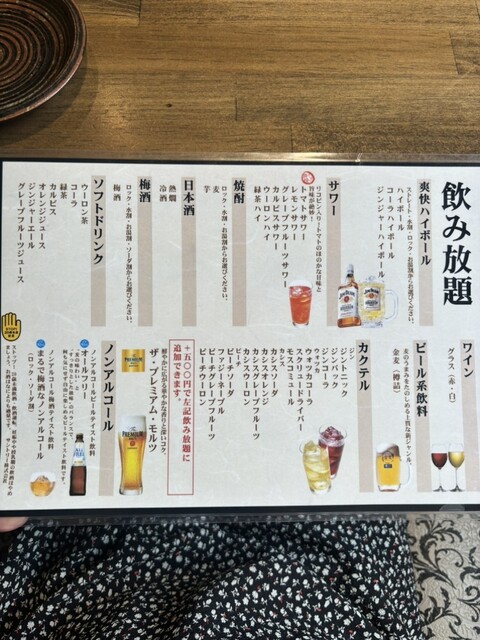 飲み放題
爽快ハイボール
ストレート・水割・ロック・お湯割からお選びください。
ハイボール
コーラハイボール
ジンジャーハイボール
サワー
リコピン入りトマトのほのかな甘味と
旨味が絶妙！
トマトサワー
レモンサワー
グレープフルーツサワー
カルピスサワー
ウーロンハイ
緑茶ハイ
焼酎
ロック・水割・お湯割からお選びください。
麦
芋
日本酒
熱燗
冷酒
梅酒
ロック・水割・お湯割・ソーダ割からお選びください。
梅酒
ソフトドリンク
ウーロン茶
コーラ
緑茶
カルピス
オレンジジュース
ジンジャーエール
グレープフルーツジュース
ワイン
グラス（赤・白）
ビール系飲料
麦のうまみをたのしめる上質な新ジャンル。
金麦（樽詰）
カクテル
ジン
ジントニック
ジンバック
ジンコーラ
ウォッカ
ウオッカコーラ
スクリュードライバー
モスコミュール
カシス
カシスソーダ
カシスオレンジ
カシスグレープフルーツ
カシスウーロン
ピーチ
ピーチソーダ
ファジーネーブル
ピーチグレープフルーツ
ピーチウーロン
＋五〇〇円で左記飲み放題に
追加できます。
ザ・プレミアム・モルツ
華やかに広がる華やかな香りと深いコク。
ノンアルコール
ノンアルコールビールテイスト飲料
オールフリー
ノンアルコール梅酒テイスト飲料
まるで梅酒なノンアルコール
（ロック・ソーダ割）